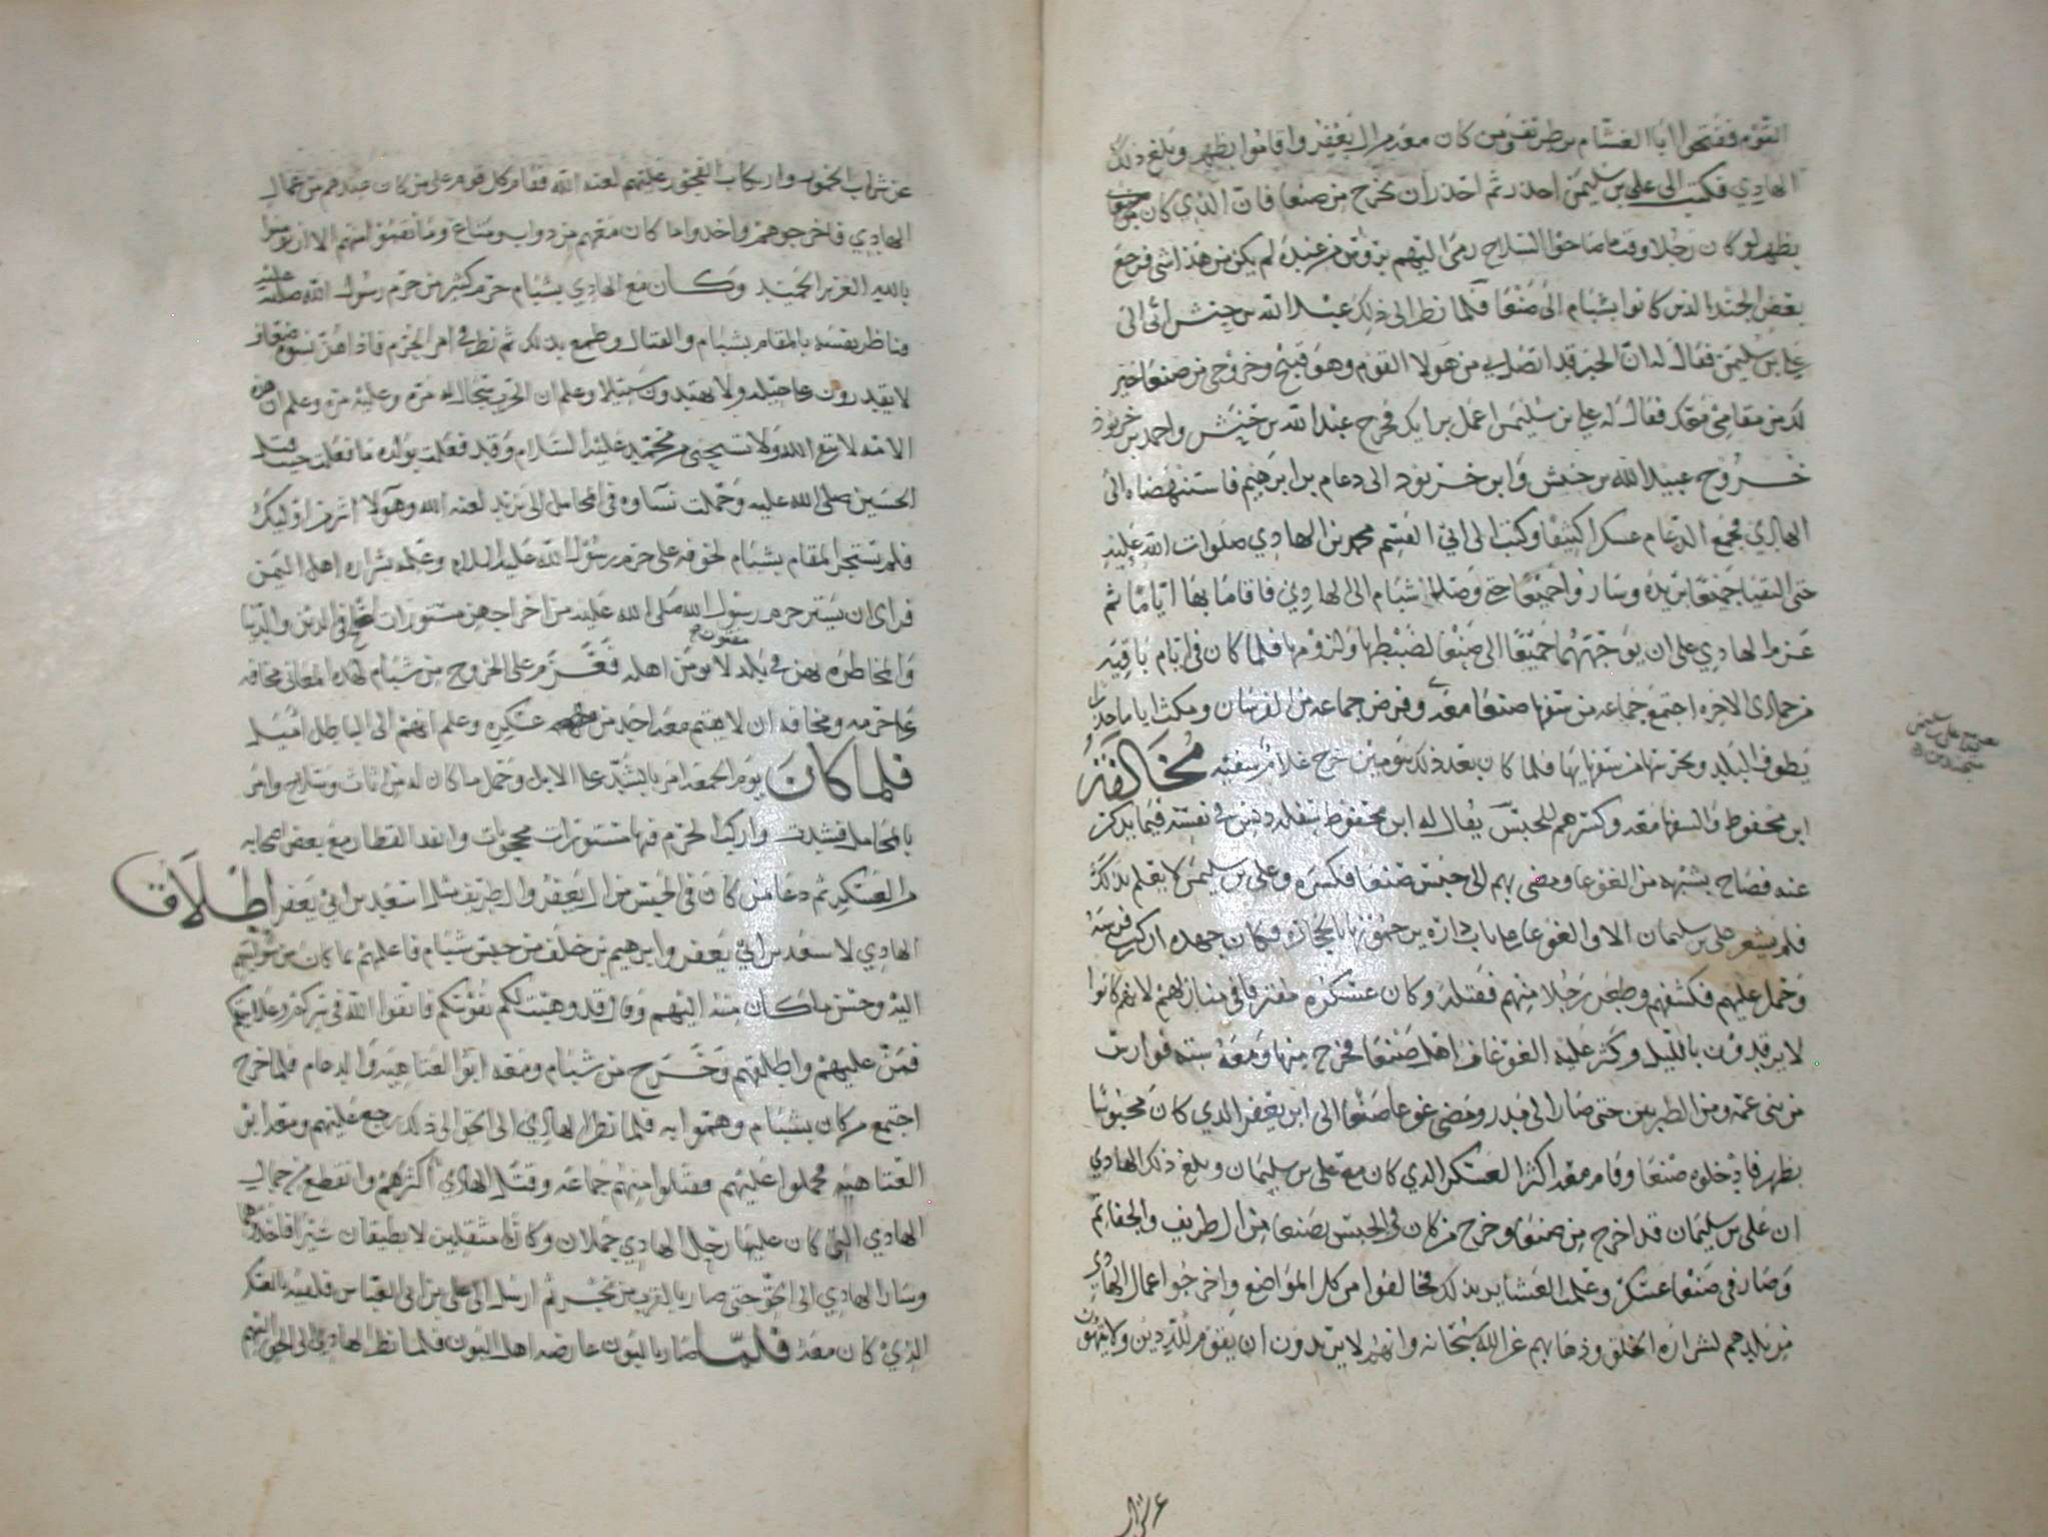 القوم ففتحوا ابا الغشام بن طريف ومن كان معه من ال يعفر واقاموا بظهر وبلغ ذلك
الهادي فكتب الى علي بن سليمن احذر ثم احذر ان تخرج من صنعا فان الذي كان
بظهر لو كان رجلا وقت ما صاحوا السلاح رمى اليهم من عنده لم يكن من هذا شي فرجع
بعض الجند الذين كانوا بشبام الى صنعا فلما نظر الى ذلك عبد الله بن حنيش اتى الى
علي بن سليمن فقال له ان الخبر قد اتصل بي من هولا القوم وهو قبيح وخروجي من صنعا خير
لك من مقامي معك فقال له علي بن سليمن اعمل برايك فخرج عبد الله بن حنيش واحمد بن
خروج عبيد الله بن حنيش وابن خربوذ الى دعام بن ابرهيم فاستنهضاه الى
الهادي فجمع الدعام عسكرا كثيفا وكتب الى ابي القسم محمد بن الهادي صلوات الله عليه
حتى التقيا جميعا بريدة وسار واجميعا حتى وصلا شبام الى الهادي فاقاما بها اياما ثم
عزم الهادي على ان يوجههما جميعا الى صنعا لضبطها ولزومها فلما كان في ايام باقيه
من جمادى الاخره اجتمع جماعه من سفها صنعا معه وفرض جماعه من الفرسان ومكث اياما
يطوف البلد ويحرسها من سفهايها فلما كان بعد ذلك بيومين خرج غلام سفيه مخالفة
ابن محفوظ والسفها معه وكسرهم للحبس يقال له ابن محفوظ سفله دنس في نفسه فيما يذكر
عنه فصاح بشبهه من الغوغا ومضى بهم الى حبس صنعا فكسره وعلي بن سليمن لا يعلم بذلك
فلم يشعر علي بن سليمان الا والغوغا على باب داره يرجمونها بالحجاره فكان جهده ان ركب فرسه
وحمل عليهم فكشفهم وطعن رجلا منهم فقتله وكان عسكره مفترقا في منازلهم لانهم كانوا
لا يرقدون بالليل وكثر عليه الغوغا من اهل صنعا فخرج منها ومعه سته فوارس
من بني عمه ومن الطبريين حتى صار الى ومضى غوغا صنعا الى ابن يعفر الذي كان محبوسا
بظهر فادخلوه صنعا وقام معه اكثر العسكر الذي كان مع علي بن سليمان وبلغ ذلك الهادي
ان علي بن سليمان قد اخرج من صنعا وخرج من كان في الحبس بصنعا من ال طريف والجفاتم
وصار في صنعا عسكر وعلمت العشاير بذلك فخالفوا من كل المواضع واخرجوا عمال الهادي
من بلدهم لشراره الخلق وذهابهم عن الله سبحانه وانهم لا يريدون ان يقوم لله دين ولا ينهون
عن شراب الخمور وارتكاب الفجور عليهم لعنه الله فقام كل قوم على من كان عندهم من عمال
الهادي فاخرجوهم واخذوا ما كان معهم من دواب ومتاع وما نقموا منهم الا ان يومنوا
بالله العزيز الحميد وكان مع الهادي بشبام حرم كثير من حرم رسول الله صلى الله عليه
فناظر نفسه بالمقام بشبام والقتال وطمع بذلك ثم نظر في امر الحرم فاذا هن نسوه ضعاف
لا يقدرون على حيله ولا يهتدون سبيلا وعلم ان الحرب سجال له مره وعليه مره وعلم ان هذه
الامه لا ترع الله ولا تستحي من محمد عليه السلام وقد فعلت بولده ما فعلت حيث قتل
الحسين صلى الله عليه وحملت نساوه في المحامل الى يزيد لعنه الله وهولا اشر من اوليك
فلم يستجز المقام بشبام لخوفه على حرم رسول الله عليه السلام وعلمه بشراره اهل اليمن
فراى ان يستر حرم رسول الله صلى الله عليه من اخراجهن مستورات اصلح في الدين والدنيا
والمخاطره بهن في بلد لا يومن اهله فعزم على الخروج من شبام لهذه المعاني مخافه
على حرمه ومخافه ان لا يقيم معه احد من عسكره وعلم انهم الى الباطل اميل
فلما كان يوم الجمعه امر بالشد على الابل وحمل ما كان له من اثاث وسلاح وامر
بالمحامل فشدت واركب الحرم فيها مستورات محجوبات وانفذ القطار مع بعض اصحابه
من العسكر ثم دعا من كان في الحبس من ال يعفر وال طريف مثل اسعد بن ابي يعفر اطلاق
الهادي لاسعد بن ابي يعفر وابرهيم بن خلف من حبس شبام فاعلمهم بما كان من
اليه وحسن ما كان منه اليهم وقال قد وهبت لكم نفوسكم فاتقوا الله في سركم وعلانيتكم
فمن عليهم واطلقهم وخرج من شبام ومعه ابو العتاهيه والدعام فلما خرج
اجتمع من كان بشبام وهموا به فلما نظر الهادي الى الحق الى ذلك رجع عليهم ومعه ابن
العتاهيه فحملوا عليهم فقتلوا منهم جماعه وقتل الهادي اكثرهم وانقطع من جمال
الهادي التي كان عليها رحل الهادي جملان وكانا مثقلين لا يطيقان سيرا فاخذوهما
وسار الهادي الى الحق حتى صار بالقرب من ثم ارسل الى علي بن ابي العباس فلقيه بالعسكر
الذي كان معه فلما صار بالبون عارضه اهل البون فلما نظر الهادي الى الحق اليهم